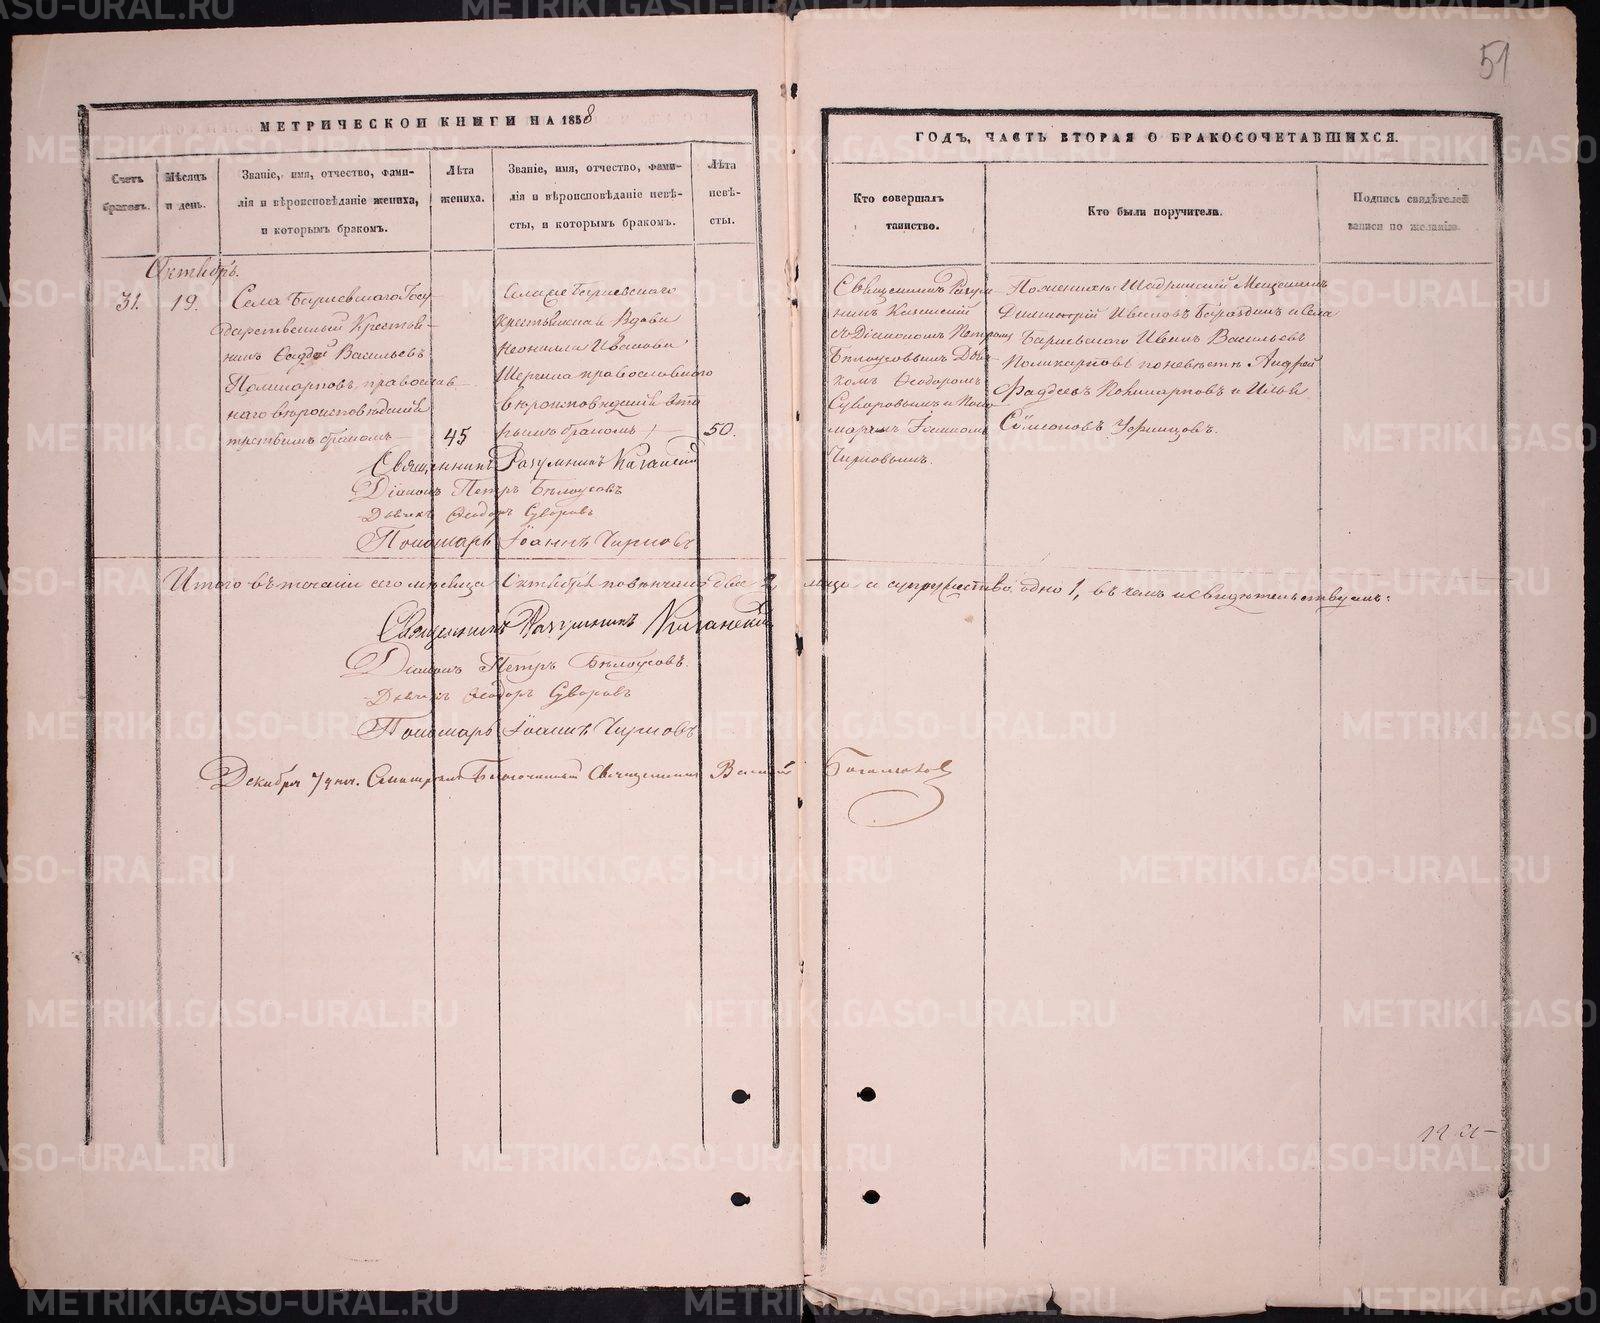 51
МЕТРИЧЕСКОЙ КНИГИ НА 1858
ГОДЪ, ЧАСТЬ ВТОРАЯ О БРАКОСОЧЕТАВШИХСЯ.
Счетъ браковъ.
Мѣсяцъ и день.
Званіе, имя, отчество, фами-
лія и вѣроисповѣданіе жениха,
и которымъ бракомъ.
Лѣта
жениха.
Званіе, имя, отчество, фами-
лія и вѣроисповѣданіе невѣ-
сты, и которымъ бракомъ.
Лѣта
невѣ-
сты.
Кто совершалъ
таинство.
Кто были поручители.
Подпись свидѣтелей
записи по желанію.
Октябрь.
31.
19.
Села Бариевскаго Госу
дарственный Крестья-
нинъ Фаддей Васильевъ
Поликарповъ православ-
наго вѣроисповѣданія
третьимъ бракомъ
45
Села Бариевскаго
крестьянская Вдова
Неонилла Иванова
православнаго
вѣроисповѣданія вто
рымъ бракомъ
50.
Священникъ Разум
никъ
съ Діакономъ Петромъ
Бѣлоусовымъ Дья
комъ Ѳеодоромъ
Суворовымъ и Поно
маремъ Іоанномъ
Чирковымъ.
По женихѣ: Шадринскій Мещанинъ
Димитрій Ивановъ Бароздинъ и села
Бариевскаго Иванъ Васильевъ
Поликарповъ по невѣстѣ Андрей
Фаддеевъ Поликарповъ и Илья
Симеоновъ
Священникъ Разумникъ
Діаконъ Петръ Бѣлоусовъ
Дьячекъ Ѳеодоръ Суворовъ
Пономарь Іоаннъ Чирковъ
Итого въ теченіи сего мѣсяца Октября повѣнчано двое 2 лица а супружество одно 1, въ чемъ и свидѣтельствуемъ:
Священникъ Разумникъ
Діаконъ Петръ Бѣлоусовъ.
Дьячекъ Ѳеодоръ Суворовъ
Пономарь Іоаннъ Чирковъ
Декабря 7 дня. Смотрѣлъ Благочинный Священникъ Василій
METRIKI.GASO-URAL.RU